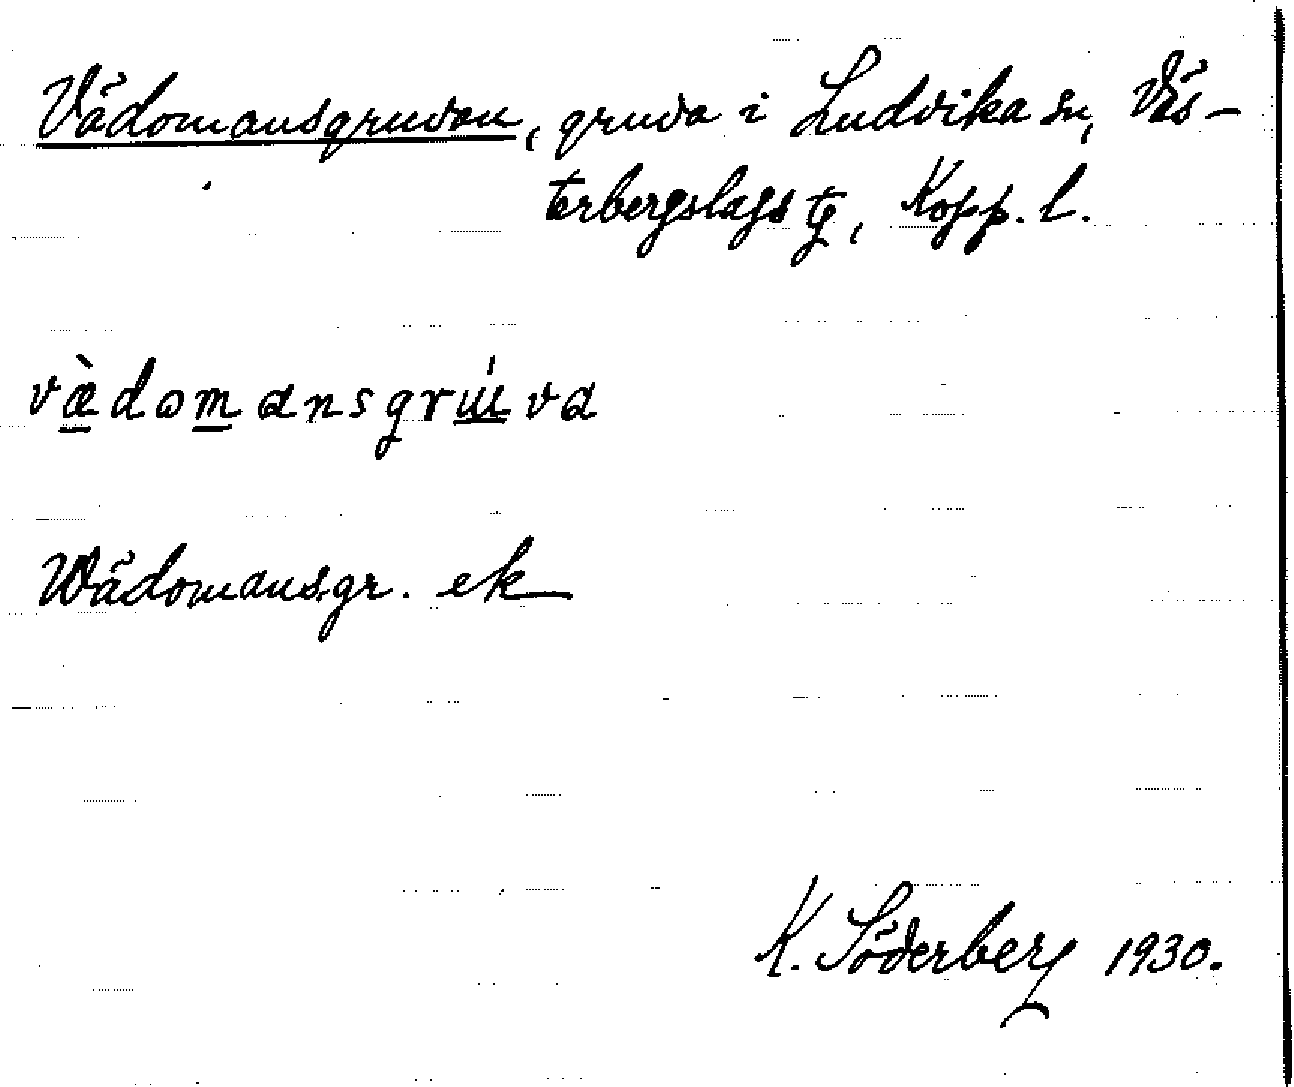 Vädomansgruvan, gruva i Ludvika sn, Väs-
terbergslags tg, Kopp. l.
væ̀domansgrɯ́va
Wädomansgr. ek
K. Söderberg 1930.